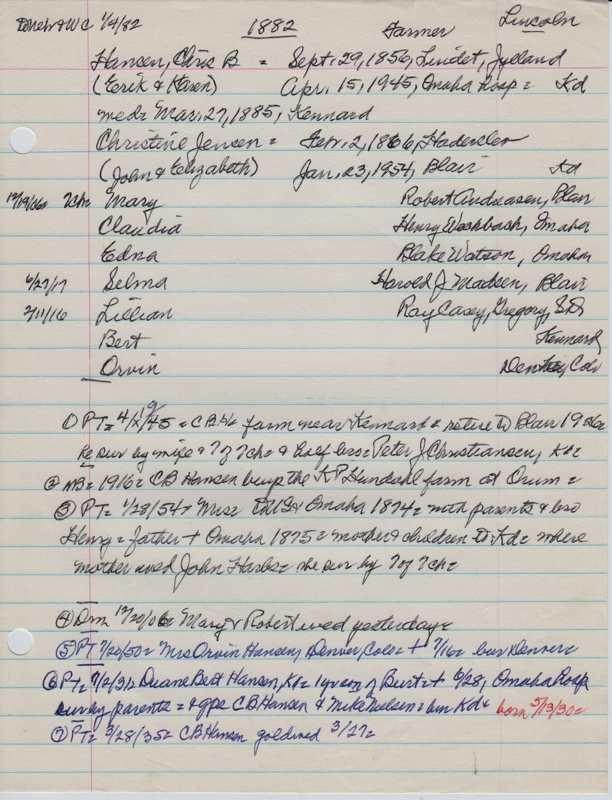 WC 1/4/82 1882 Farmer Lincoln
Hansen, Chris B = Sept. 29, 1856, Lindet, Jylland
(Erik & Karen) Apr. 15, 1945, Omaha Hosp = Kd
med= Mar. 27, 1885, Kennard
Christine Jensen = Febr. 2, 1866, Haderslev
(John & Elizabeth) Jan. 23, 1954, Blair Kd
12/19/06 7ch= Mary Robert Andreasen, Blair
Claudia Henry, Omaha
Edna Blake Watson, Omaha
6/27/17 Selma Harold J Madsen, Blair
2/11/16 Lillian Ray Casey, Gregory, S.D.
Bert Kennard
Orvin Denver, Colo
① PT= 4/19/45 = CBH= farm near Kennard = retire to Blair 19
He sur by wife & 7 of 7ch= & half bro= Peter J Christiansen, Kd=
② = 1916= CB Hansen buys the KP Hundahl farm at Orum =
③ PT= 1/28/54= Mrs= to US & Omaha 1874= with parents & bro
Henry = father + Omaha 1875= mother & children to Kd= where
mother wed John Harbs= she sur by 7 of 7ch=
④ Dm 12/20/06= Mary & Robert wed yesterday=
⑤ PT 7/20/50= Mrs Orvin Hansen, Denver, Colo= + 7/16= bur Denver=
⑥ PT= 7/2/31= Duane Bert Hansen, Kd= 1 yr son of Bert= + 6/28, Omaha Hosp
sur by parents = & gps CB Hansen & Mike Nielsen= bur Kd= born 5/13/30=
⑦ PT= 3/28/35= CB Hansen gold wed 3/27=